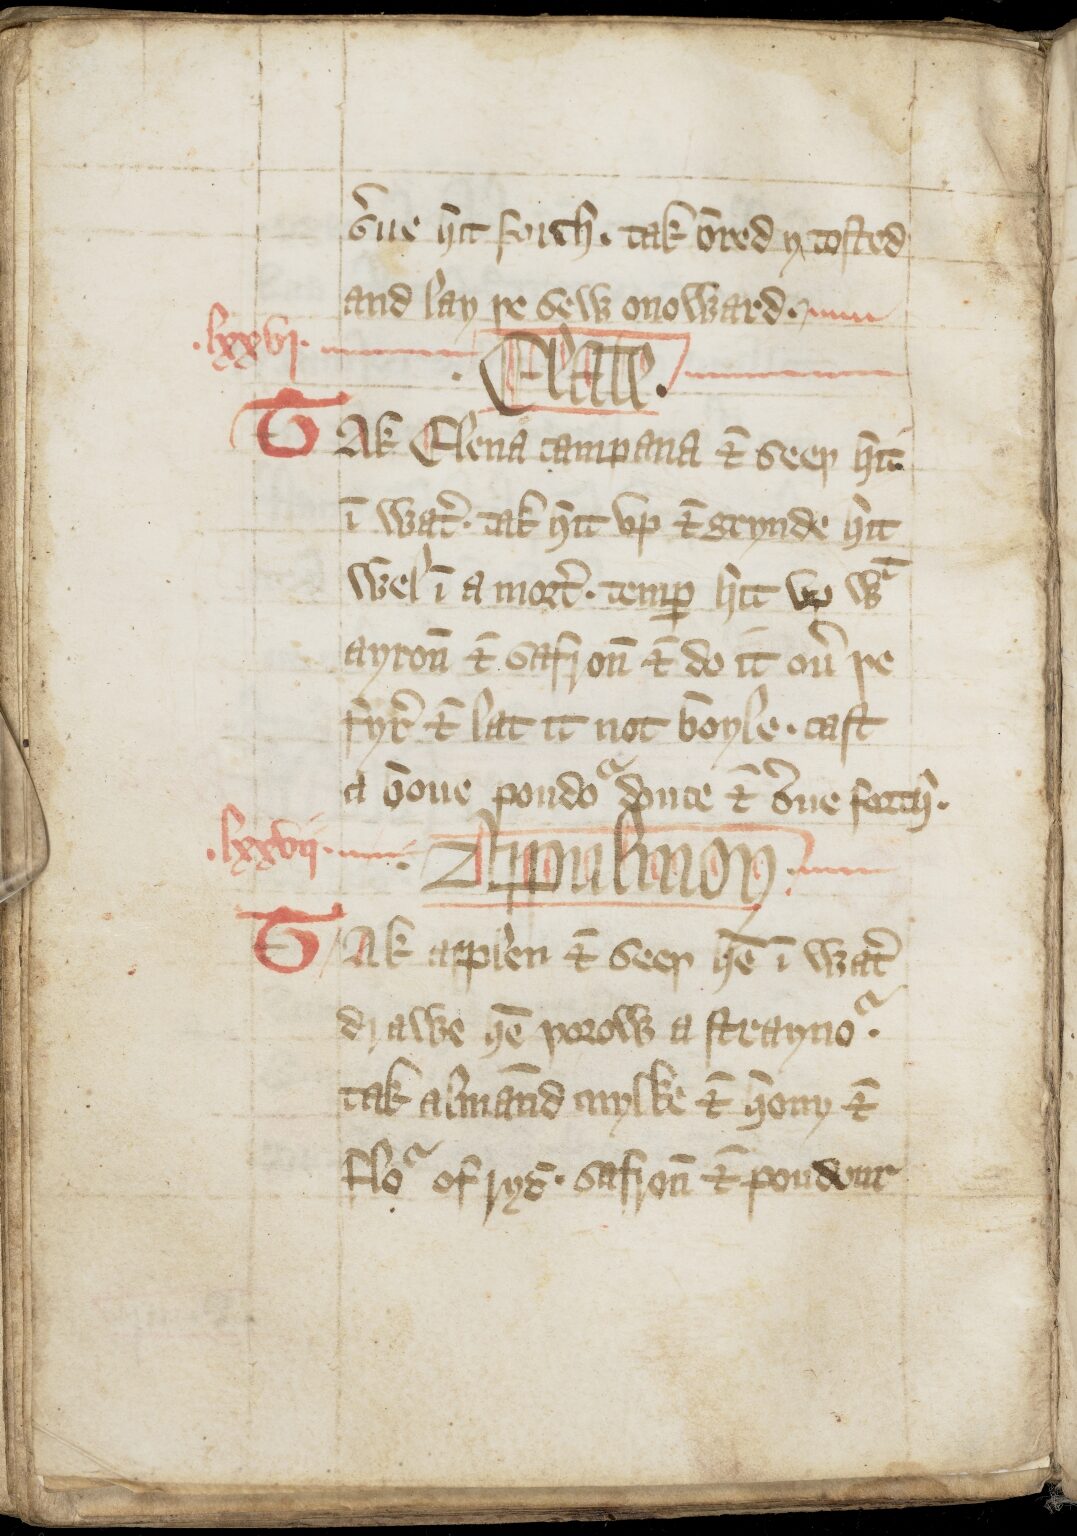 s̄ue hit forth. tak bred y tosted
and lay þe sew onoward.
.lxxvi. Elate.
TAk Elena campana & seeþ hit
ī wat̄. tak hit vp & grynde hit
wel ī a mort̄. temp hit vp wt
ayroñ & safroñ & do it oū þe
fyr̄ & lat it not boyle. cast
a boue poudoᷣ douce & s̄ue forth.
.lxxvii. Apulmoy
TAk applen & seeþ hē ī wat̄
drawe hē þorow a straynoᷣ.
tak almānd mylke & hony &
floᷣ of rys̄. safroñ & poudour